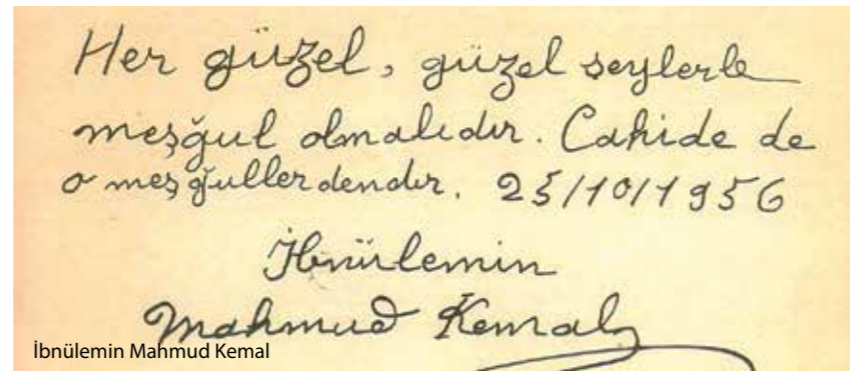 Her güzel, güzel seylerle
meşğul olmalıdır. Cahide de
o meşğullerdendir. 25/10/1956
İbnülemin
Mahmud Kemal
İbnülemin Mahmud Kemal